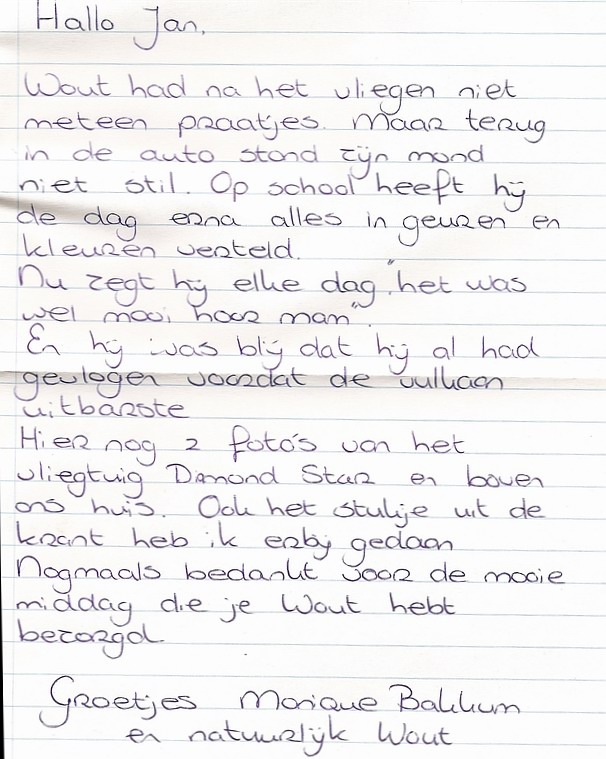 Hallo Jan,
Wout had na het vliegen niet
meteen praatjes. Maar terug
in de auto stond zijn mond
niet stil. Op school heeft hij
de dag erna alles in geuren en
kleuren verteld.
Nu zegt hij elke dag "het was
wel mooi hoor mam".
En hij was blij dat hij al had
gevlogen voordat de vulkaan
uitbarste
Hier nog 2 foto's van het
vliegtuig Dimond Star en boven
ons huis. Ook het stukje uit de
krant heb ik erbij gedaan
Nogmaals bedankt voor de mooie
middag die je Wout hebt
bezorgd.
Groetjes Monique Bakkum
en natuurlijk Wout